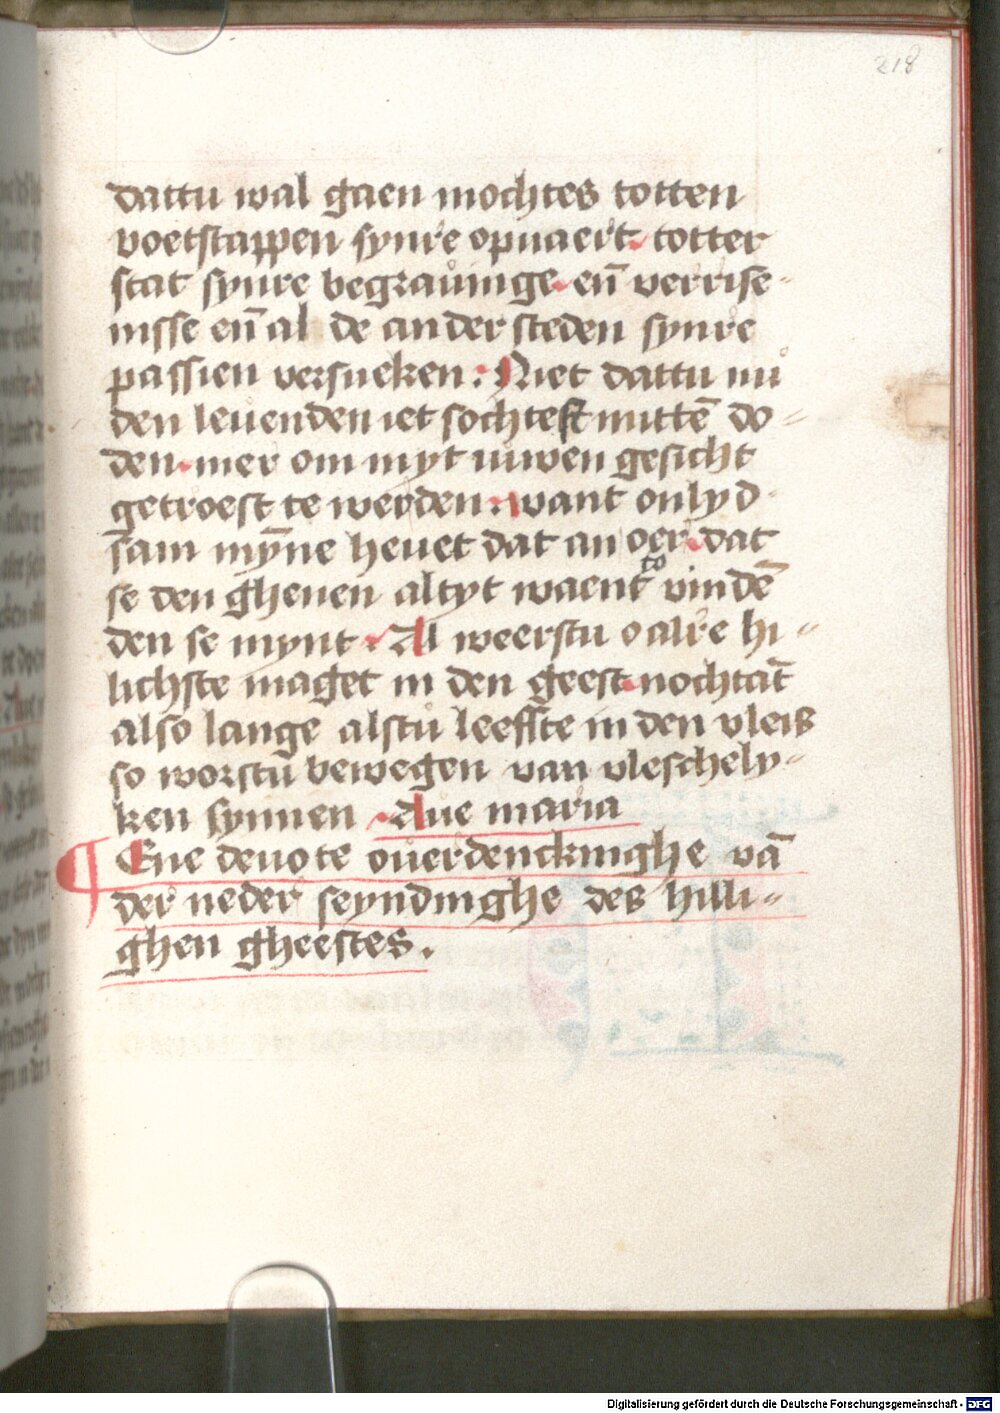 218
dattu wal gaen mochtes totten
voetstappen synre opuaert. totter
stat synre begrauinge. en̄ verrise-
nisse en̄ al de ander steden synre
passien versueken: Niet dattu nů
den leuenden iet sochtest mittē do-
den. mer om myt nuwen gesicht
getroest te werden. want onlyd
sam mȳne heuet dat an oer. dat
se den ghenen altyt waent to vindē
den se mynt. Al weerstu o alre hi-
lichste maget in den geest. nochtāt
also lange alstu leefste in den vleis
so worstu bewegen van vleschely-
ken synnen. Aue maria
¶ Ene deuote ouerdenckinghe vā
der neder seyndinghe des hilli-
ghen gheestes.
Digitalisierung gefördert durch die Deutsche Forschungsgemeinschaft - DFG